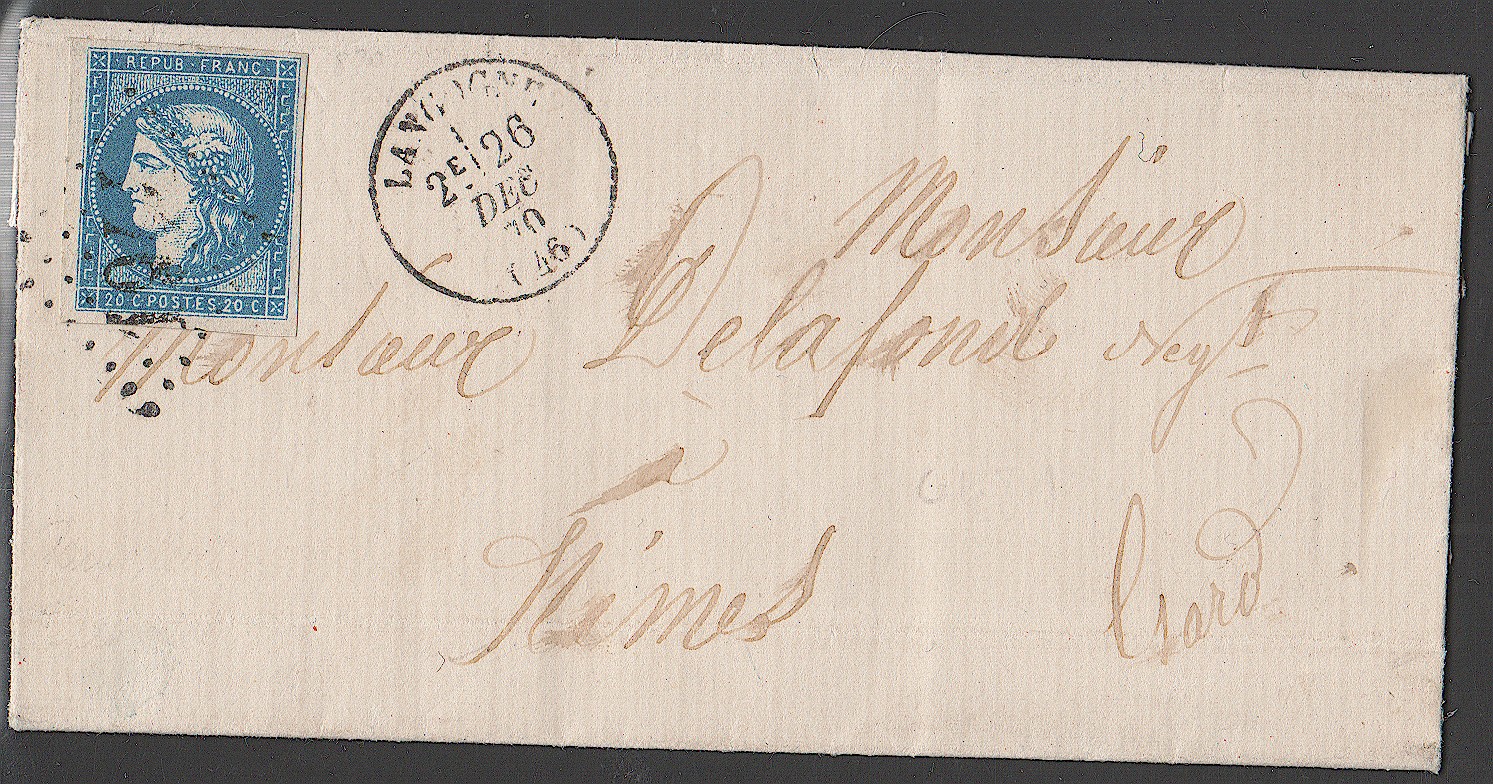 REPUB FRANC
20 C POSTES 20 C
LANGOGNE
2E 26
DEC
70
(46)
Monsieur
Delafond Negt
à
Nîmes
Gard